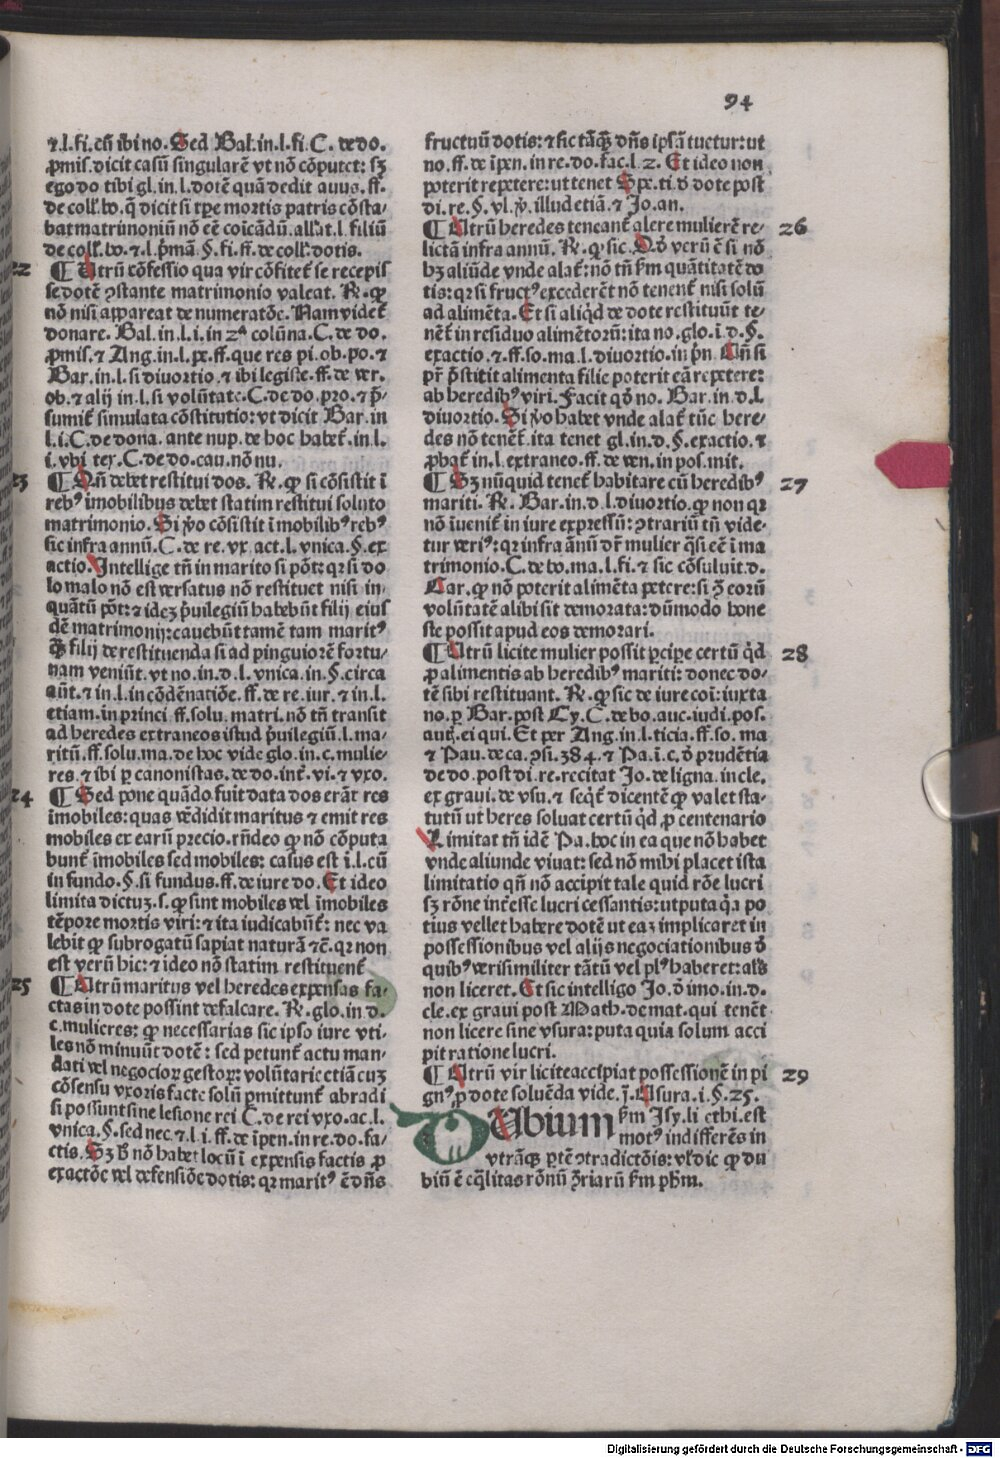 94
⁊.l.fi.cū ibi no. Sed Bal.in.l.fi. C. de do.
ꝓmis.dicit casū singularē vt nō cōputet: sꝫ
ego do tibi gl.in.l.dotē quā dedit auus.ff.
de coll.bo.q̄ dicit si tp̄e mortis patris cōsta-
bat matrimoniū nō eē coicādū.all'at.l.filiū
de coll.bo.⁊.l.p̄mā.§.fi.ff.de coll'.dotis.
22 ¶ Utrū cōfessio qua vir cōfitet̄ se recepis
se dotē ꝯstante matrimonio valeat. R̄. ꝙ
nō nisi appareat de numeratōe. Nam videt̄
donare. Bal.in.l.i.in 2ª colūna.C.de do.
ꝓmis.⁊ Ang.in.l.pe.ff.que res pi.ob.po.⁊
Bar.in.l.si diuortio.⁊ ibi legiste.ff.de ver.
ob.⁊ alij in.l.si volūtate.C.de do.pro.⁊ p̄-
sumit̄ simulata cōstitutio: vt dicit Bar.in
l.i.C.de dona.ante nup.de hoc habet̄.in.l.
i.vbi tex.C.de do.cau.nō nu.
23 ¶ Qn̄ debet restitui dos. R̄. ꝙ si cōsistit ī
rebꝰ imobilibus debet statim restitui soluto
matrimonio. Si v̊o cōsistit ī mobilibꝰ rebꝰ
sic infra annū.C.de re.vx.act.l.vnica.§.ex
actio. Intellige tn̄ in marito si pōt: qꝛ si do
lo malo nō est versatus nō restituet nisi in-
quātū pōt: ⁊ ideꝫ p̄uilegiū habebūt filij eius
dē matrimonij: cauebūt tamē tam maritꝰ
ꝙ̄ filij de restituenda si ad pinguiorē fortu-
nam veniūt.vt no.in.d.l.vnica.in.§.circa
aūt.⁊ in.l.in cōdēnatiōe.ff.de re.iur.⁊ in.l.
etiam.in princi.ff.solu.matri.nō tn̄ transit
ad heredes extraneos istud p̄uilegiū.l.ma-
ritū.ff.solu.ma.de hoc vide glo.in c.mulie-
res.⁊ ibi ꝑ canonistas.de do.int̄.vi.⁊ vxo.
24 ¶ Sed pone quādo fuit data dos erāt res
īmobiles: quas vēdidit maritus ⁊ emit res
mobiles ex earū precio.rn̄deo ꝙ nō cōputa
bunt̄ īmobiles sed mobiles: casus est ī.l.cū
in fundo.§.si fundus.ff.de iure do. Et ideo
limita dictuꝫ.s.ꝙ sint mobiles vel īmobiles
tēpore mortis viri: ⁊ ita iudicabūt̄: nec va
lebit ꝙ subrogatū sapiat naturā ⁊c̄.qꝛ non
est verū hic: ⁊ ideo nō statim restituent̄
25 ¶ Utrū maritus vel heredes expensas fa-
ctas in dote possint defalcare. R̄. glo.in d.
c.mulieres: ꝙ necessarias sic ipso iure vti-
les nō minuūt dotē: sed petunt̄ actu man-
dati vel negocioꝝ gestoꝝ: volūtarie etiā cuꝫ
cōsensu vxoris facte solū ꝑmittunt̄ abradi
si possunt sine lesione rei C.de rei vxo.ac.l.
vnica.§.sed nec.⁊.l.i.ff.de īpen.in re.do.fa-
ctis. Sꝫ h̄ nō habet locū ī expensis factis ꝓ
exactōe vel defensiōe dotis: qꝛ maritꝰ ē dn̄s
fructuū dotis: ⁊ sic tāꝙ̄ dn̄s ip̄sā tuetur: ut
no.ff.de īpen.in re.do.fac.l.2. Et ideo non
poterit repetere: ut tenet Spe.ti.d̄ dote post
di.re.§.vl.v̊.illud etiā.⁊ Jo.an.
¶ Utrū heredes teneant̄ alere mulierē re- 26
lictā infra annū. R̄. ꝙ sic. Qd̄ verū ē si nō
hꝫ aliūde vnde alat̄: nō tn̄ ẜm quātitatē do
tis: qꝛ si fructꝰ excederēt nō tenent̄ nisi solū
ad alimēta. Et si aliqd̄ de dote restituūt te-
nēt̄ in residuo alimētorū: ita no.glo.ī.d.§.
exactio.⁊.ff.so.ma.l.diuortio.in pn̄. Un̄ si
pr̄ p̄stitit alimenta filie poterit eā repetere:
ab heredibꝰ viri. Facit qd̄ no. Bar.in.d.l.
diuortio. Si v̊o habet vnde alat̄ tūc here-
des nō tenēt̄.ita tenet gl.in.d.§.exactio.⁊
ꝓbat̄ in.l.extraneo.ff.de ven.in pos.mit.
¶ Sꝫ nūquid tenet̄ habitare cū heredibꝰ 27
mariti. R̄. Bar.in.d.l.diuortio.ꝙ non qꝛ
nō īuenit̄ in iure expressū: ꝯtrariū tn̄ vide-
tur veriꝰ: qꝛ infra ānū dr̄ mulier q̄si eē ī ma
trimonio.C.de bo.ma.l.fi.⁊ sic cōsuluit.d.
Car.ꝙ nō poterit alimēta petere: si ꝯ̄ eorū
volūtatē alibi sit demorata: dūmodo hone
ste possit apud eos demorari.
¶ Utrū licite mulier possit ꝑciꝑe certū qd̄ 28
ꝓ alimentis ab heredibꝰ mariti: donec do-
tē sibi restituant. R̄. ꝙ sic de iure coī: iuxta
no.ꝑ Bar.post Cy.C.de bo.auc.iudi.pos.
auꝫ.ei qui. Et per Ang.in.l.ticia.ff.so.ma
⁊ Pau.de ca.ꝯsi.384.⁊ Pa.ī.c.d̄ prudētia
de do.post di.re.recitat Jo.de ligna.in cle.
ex graui.de vsu.⁊ seqt̄ dicentē ꝙ valet sta-
tutū ut heres soluat certū qd̄ ꝓ centenario
Limitat tn̄ idē Pa.hoc in ea que nō habet
vnde aliunde viuat: sed nō mihi placet ista
limitatio qn̄ nō accipit tale quid rōe lucri
sꝫ rōne int̄esse lucri cessantis: ut puta q̄a po
tius vellet habere dotē ut eaꝫ implicaret in
possessionibus vel alijs negociationibus d̄
quibꝰ verisimiliter tātū vel plꝰ haberet: als̄
non liceret. Et sic intelligo Jo.d̄ imo.in.d.
cle.ex graui post Math.de mat.qui tenēt
non licere sine vsura: puta quia solum acci
pit ratione lucri.
¶ Utrū vir licite accipiat possessionē in pi 29
gnꝰ ꝓ dote soluēda vide.j. Usura.i.§.25.
DUbium ẜm Isy.li ethi.est
motꝰ indifferēs in
vtrāꝙ ꝑtē ꝯtradictōis: vl' dic ꝙ du
biū ē eq̄litas rōnū ꝯ̄riarū ẜm ph̄m.
Digitalisierung gefördert durch die Deutsche Forschungsgemeinschaft - DFG